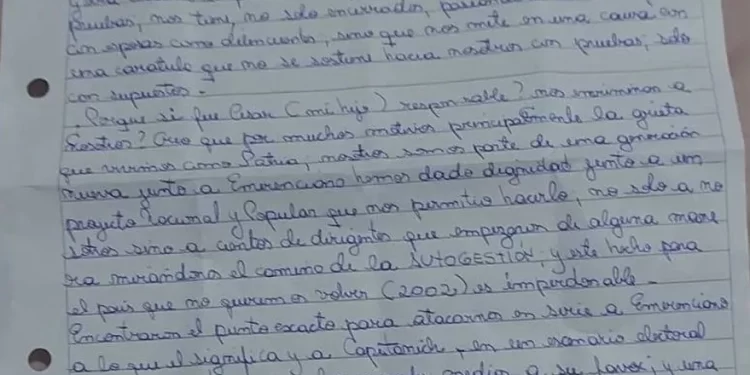 pruebas, nos tiene, no solo encerrados,
con esposas como delincuentes, sino que nos mete en una causa con
una caratula que no se sostiene hacia nosotros con pruebas, solo
con supuestos.-
Porque si fue Cesar (mi hijo) responsable? nos incriminan a
nosotros? Creo que por muchos motivos principalmente la grieta
que vivimos como Patria, nosotros somos parte de una generación
nueva junto a Emerenciano hemos dado dignidad junto a un
proyecto Nacional y Popular que nos permitio hacerlo, no solo a no
sotros sino a cientos de dirigentes que empezaron de alguna mane
ra mirandonos el camino de la AUTOGESTIÓN, y este hecho para
el país que no queremos volver (2002) es imperdonable.-
Encontraron el punto exacto para atacarnos en serie a Emerenciano
a lo que el significa y a Capitanich, en un escenario electoral
medio a su favor, y una